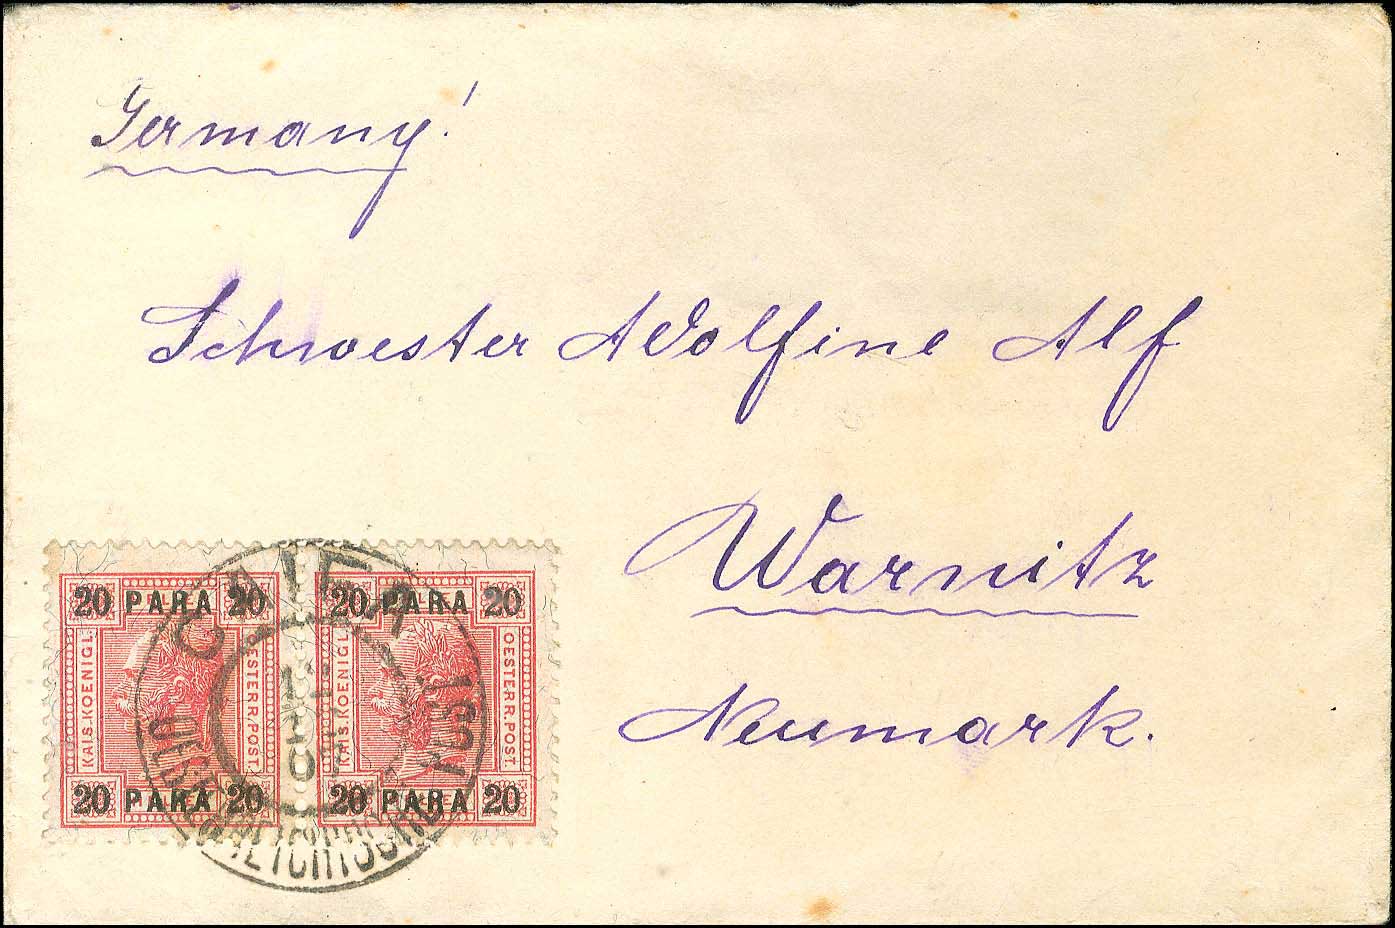 Germany!
Schwester Adolfine Alf
Warnitz
Neumark.
20 PARA 20
KAIS. KOENIGL.
OESTERR. POST.
20 PARA 20
20 PARA 20
KAIS. KOENIGL.
OESTERR. POST.
20 PARA 20
CAIFA